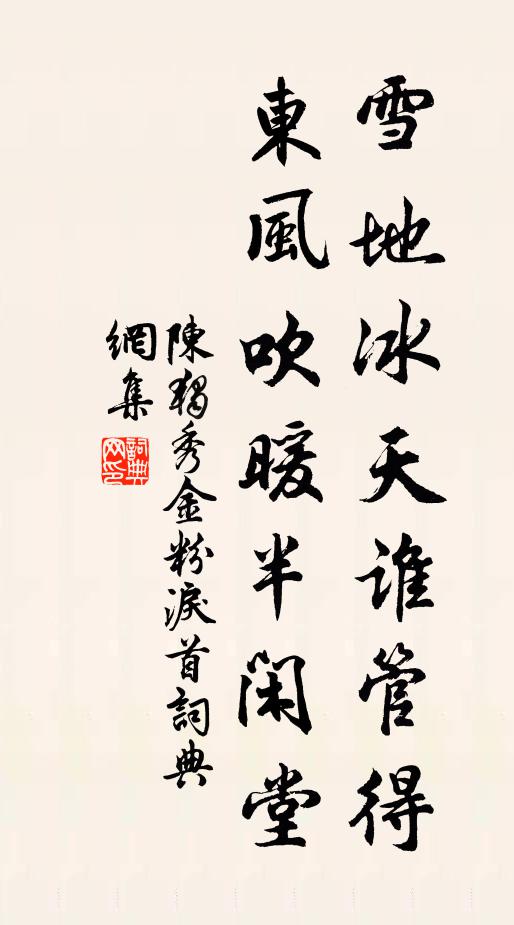 雪地冰天誰管得
東風吹暖半閑堂
陳獨秀金粉淚首詞典
網集
詞典網印